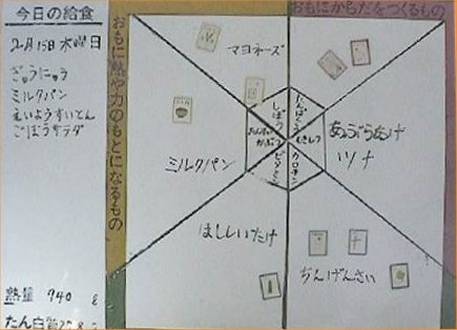 今日の給食
2月15日 水曜日
ぎゅうにゅう
ミルクパン
えいようすいとん
ごぼうサラダ
熱量 940
たん白質
おもに熱や力のもとになるもの
おもにからだをつくるもの
マヨネーズ
あぶらあげ
ツナ
ミルクパン
ほししいたけ
ちんげんさい
しぼう
たんぱくしつ
むきしつ
カロチン
ビタミン